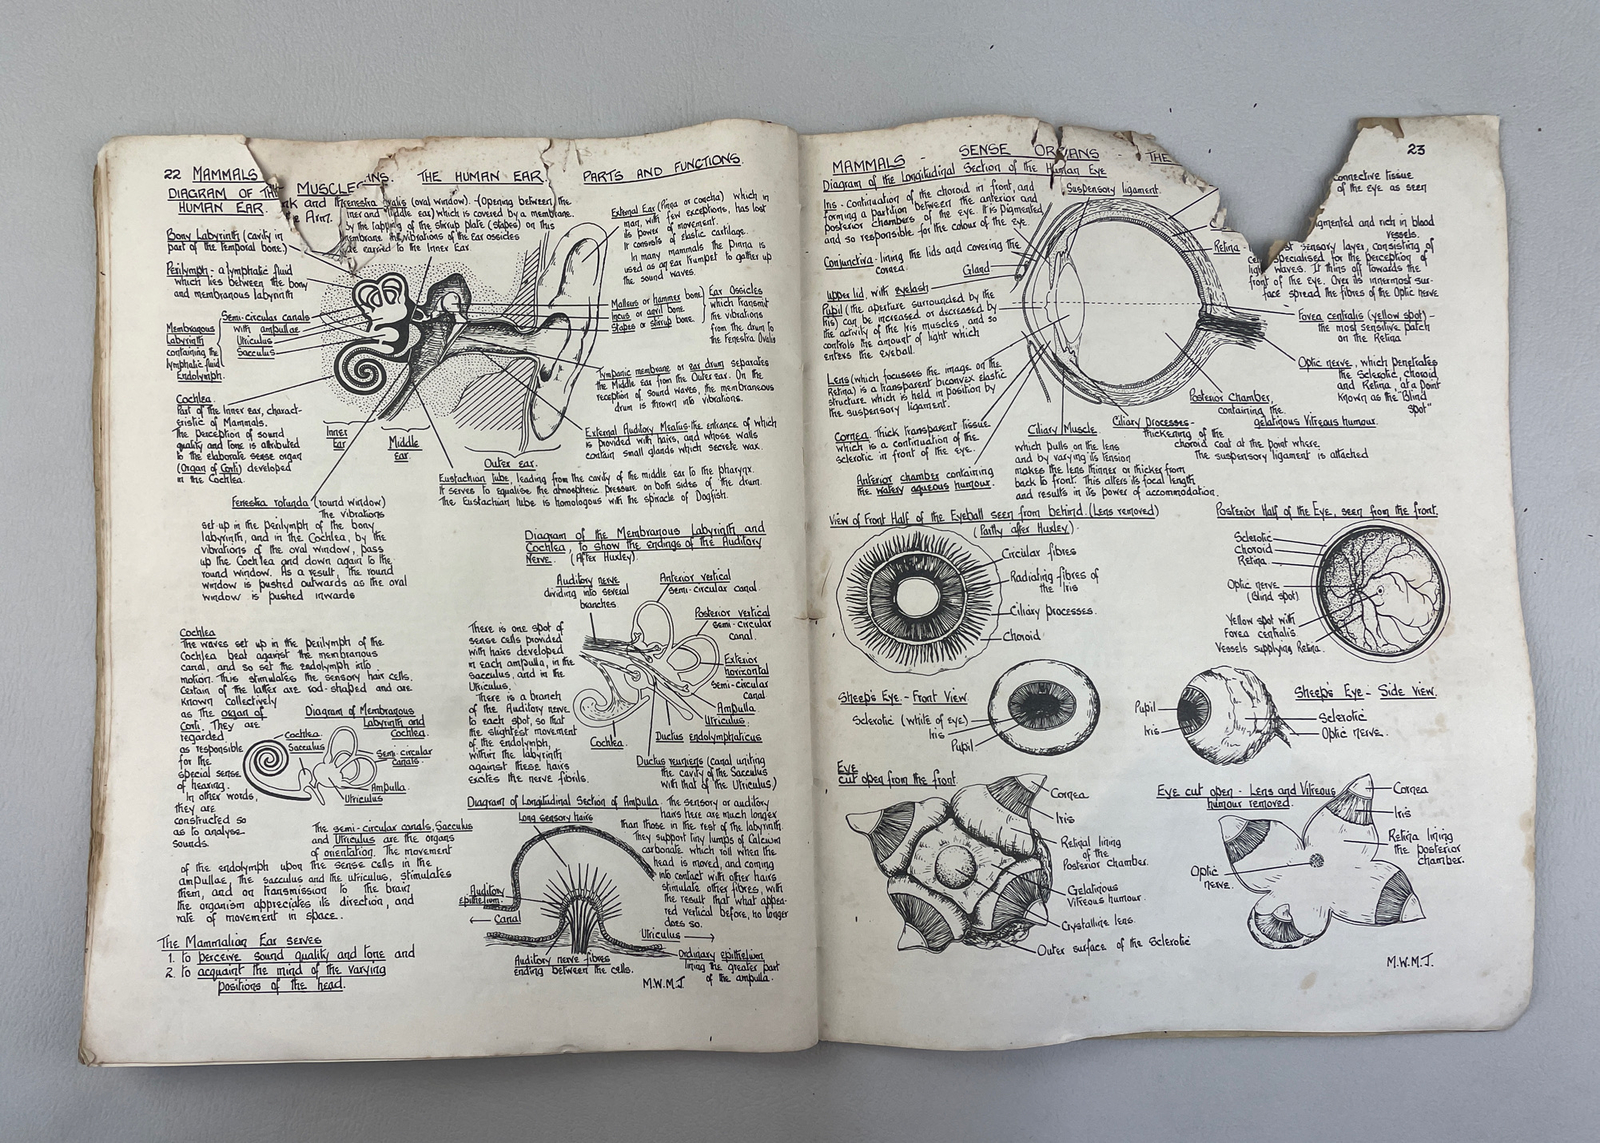 22 MAMMALS
THE HUMAN EAR.
PARTS AND FUNCTIONS.
DIAGRAM OF THE
HUMAN EAR.
MUSCLE
nk and
e Arm.
Fenestra ovalis (oval window). - (Opening between the
inner and middle ear) which is covered by a membrane.
by the tapping of the stirrup plate (stapes) on this
membrane the vibrations of the ear ossicles
are carried to the Inner Ear.
External Ear (Pinna or concha) which in
man, with few exceptions, has lost
its power of movement.
It consists of elastic cartilage.
In many mammals the Pinna is
used as an ear trumpet to gather up
the sound waves.
Bony Labyrinth (cavity in
part of the Temporal bone.)
Perilymph - a lymphatic fluid
which lies between the bony
and membranous labyrinth
Semi-circular canals
with ampullae
Utriculus
Sacculus
Membranous
Labyrinth
containing the
lymphatic fluid
Endolymph.
Malleus or hammer bone
Incus or anvil bone
Stapes or stirrup bone.
Ear Ossicles
which transmit
the vibrations
from the drum to
the Fenestra Ovalis
Tympanic membrane or ear drum separates
the Middle ear from the Outer ear. On the
reception of sound waves, the membraneous
drum is thrown into vibrations.
Cochlea.
Part of the Inner ear, charact-
eristic of Mammals.
The perception of sound
quality and tone is attributed
to the elaborate sense organ
(Organ of Corti) developed
in the Cochlea.
Inner
ear
Middle
ear.
Outer ear.
External Auditory Meatus - the entrance of which
is provided with hairs, and whose walls
contain small glands which secrete wax.
Eustachian tube, leading from the cavity of the middle ear to the pharynx.
It serves to equalise the atmospheric pressure on both sides of the drum.
The Eustachian tube is homologous with the spiracle of Dogfish.
Fenestra rotunda (round window)
The vibrations
set up in the perilymph of the bony
labyrinth, and in the Cochlea, by the
vibrations of the oval window, pass
up the Cochlea and down again to the
round window. As a result, the round
window is pushed outwards as the oval
window is pushed inwards
Diagram of the Membranous Labyrinth and
Cochlea, to show the endings of the Auditory
Nerve. (After Huxley).
Auditory nerve
dividing into several
branches.
Anterior vertical
semi-circular canal.
Posterior vertical
semi-circular
canal.
Exterior
horizontal
semi-circular
canal
Ampulla.
Utriculus.
Ductus endolymphaticus
Cochlea.
Ductus reuniens (canal uniting
the cavity of the Sacculus
with that of the Utriculus)
There is one spot of
sense cells provided
with hairs developed
in each ampulla, in the
sacculus, and in the
Utriculus.
There is a branch
of the Auditory nerve
to each spot, so that
the slightest movement
of the endolymph,
within the labyrinth
against these hairs
excites the nerve fibrils.
Cochlea
The waves set up in the perilymph of the
Cochlea beat against the membranous
canal, and so set the endolymph into
motion. This stimulates the sensory hair cells.
Certain of the latter are rod-shaped and are
known collectively
as the organ of
Corti. They are
regarded
as responsible
for the
special sense
of hearing.
In other words,
they are
constructed so
as to analyse
sounds.
Diagram of Membranous
Labyrinth and
Cochlea.
Cochlea
Sacculus
Semi-circular
canals.
Ampulla.
Utriculus
The semi-circular canals, Sacculus
and Utriculus are the organs
of orientation. The movement
of the endolymph upon the sense cells in the
ampullae, the sacculus and the utriculus, stimulates
them, and on transmission to the brain
the organism appreciates its direction, and
rate of movement in space.
The Mammalian Ear serves
1. to perceive sound quality and tone and
2. to acquaint the mind of the varying
positions of the head.
Diagram of Longitudinal Section of Ampulla.
Long sensory hairs
The sensory or auditory
hairs here are much longer
than those in the rest of the labyrinth
They support tiny lumps of Calcium
carbonate which roll when the
head is moved, and coming
into contact with other hairs
stimulate other fibres, with
the result that what appea-
red vertical before, no longer
does so.
Auditory
epithelium.
Canal
Utriculus
Auditory nerve fibres
ending between the cells.
Ordinary epithelium
lining the greater part
of the ampulla.
M.W.M.J
MAMMALS - SENSE ORGANS - THE
23
Diagram of the Longitudinal Section of the Human Eye
Iris - Continuation of the choroid in front, and
forming a partition between the anterior and
posterior chambers of the eye. It is pigmented
and so responsible for the colour of the eye.
Suspensory ligament.
connective tissue
of the eye as seen
igmented and rich in blood
vessels.
Retina
st sensory layer, consisting of
specialised for the perception of
light waves. It thins off towards the
front of the Eye. Over its innermost sur-
face spread the fibres of the Optic nerve
Conjunctiva - lining the lids and covering the
cornea.
Gland
Upper lid, with eyelash
Pupil (the aperture surrounded by the
Iris) can be increased or decreased by
the activity of the Iris muscles, and so
controls the amount of light which
enters the eyeball.
Fovea centralis (yellow spot) -
the most sensitive patch
on the Retina
Optic nerve, which penetrates
the Sclerotic, choroid
and Retina, at a point
known as the "Blind
Spot"
Lens (which focusses the image on the
Retina) is a transparent biconvex elastic
structure which is held in position by
the suspensory ligament.
Posterior Chamber,
containing the
gelatinous Vitreous humour.
Cornea. Thick transparent tissue
which is a continuation of the
sclerotic in front of the eye.
Ciliary Muscle.
which pulls on the lens
and by varying its tension
makes the lens thinner or thicker from
back to front. This alters its focal length
and results in its power of accommodation.
Ciliary Processes -
thickening of the
choroid coat at the point where
the suspensory ligament is attached
Anterior chamber containing
the watery aqueous humour.
View of Front Half of the Eyeball seen from behind. (Lens removed)
(Partly after Huxley).
Circular fibres
Radiating fibres of
the Iris
Ciliary processes.
Choroid
Posterior Half of the Eye, seen from the front.
Sclerotic
Choroid
Retina.
Optic nerve
(Blind spot)
Yellow spot with
Fovea centralis.
Vessels supplying Retina.
Sheep's Eye - Front View.
Sclerotic (white of eye)
Iris
Pupil
Sheep's Eye - Side View.
Pupil
Iris
Sclerotic
Optic nerve.
Eye
cut open from the front
Cornea
Iris
Retinal lining
of the
Posterior chamber.
Gelatinous
Vitreous humour.
Crystalline lens.
Outer surface of the Sclerotic
Eye cut open - Lens and Vitreous
humour removed.
Cornea
Iris
Retina lining
the posterior
chamber.
Optic
nerve.
M.W.M.J.